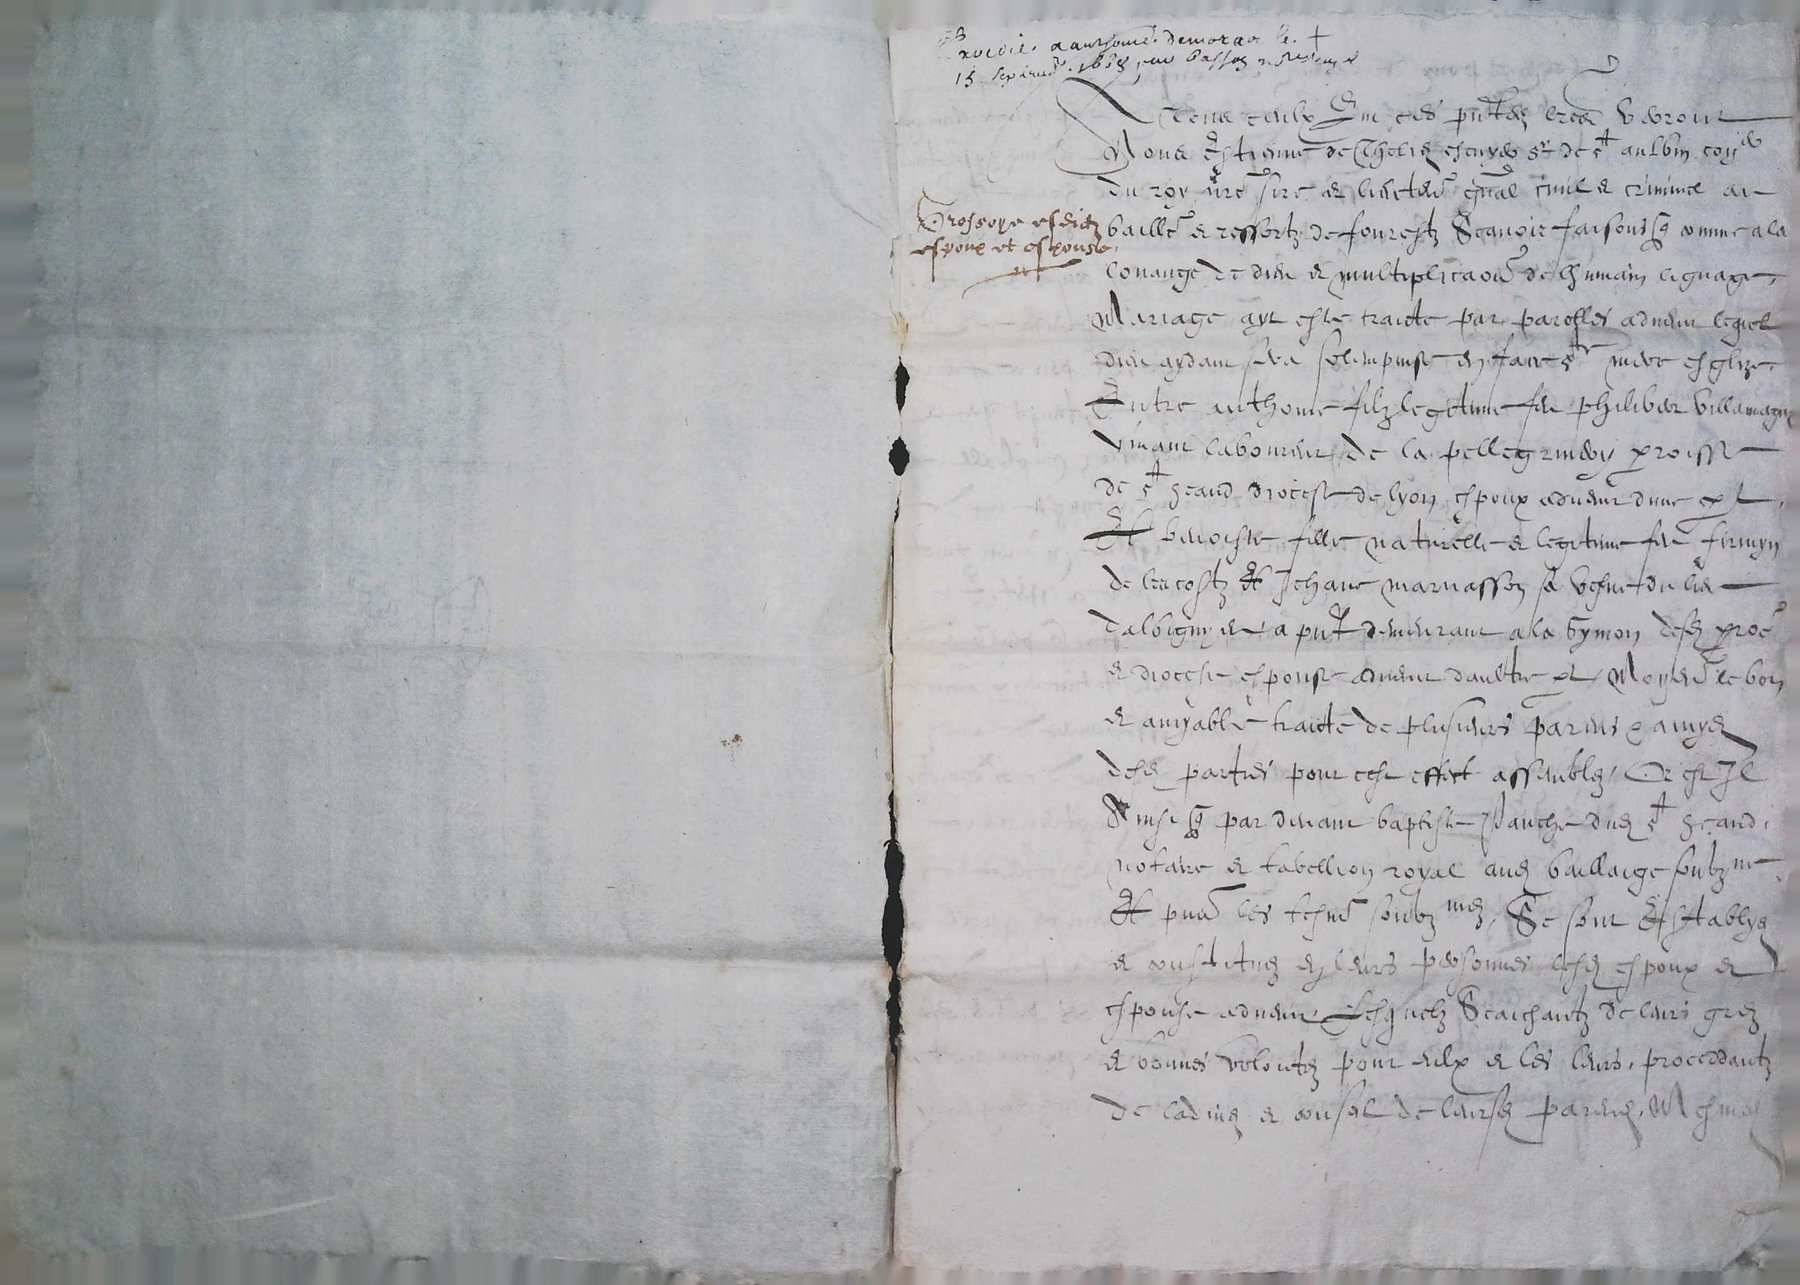 15 septemb. 1668 par
A Tous ceulx Qui ces pntes lres verront
Nous Estienne de Thelis escuyer sr de st aulbin conr
du roy nre sire et lieutent gnal civil et criminel au
baille et ressortz de fourestz Scavoir faisons q comme a la
louange de dieu et multiplicaon de lhumain lignage,
Mariage ayt este traicte par parolles advenir lequel
dieu aydant sera solempnise en face ste mere esglize
Entre anthoine filz legitime feu philiber villemagne
vivant laboureur de la pellegrinery proisse
de st heand diocese de lyon espoux advenir dune pt,
Et benoiste fille naturelle et legitime feu firmyn
de lercostz Et Jehane marnasson sa vefve du lieu
dalbigny et a pnt demeurant a la Symon desd proe
et diocese espouse advenir daultre pt, Moyent le bon
et amyable traicte de plusieurs parens et amyes
desd parties pour cest effect assemblez, Or est Il
Ainsi q par devant baptiste planche dud st heand,
notaire et tabellion royal aud bailliage soubz ne
Et pns les tesms soubz nmes, Se sont Establys
et constitues en leurs personnes lesd espoux et
espouse advenir, Lesquelz Scaichantz de leurs grez
et bonnes volontez pour eulx et les leurs, proceddantz
de ladvis et conseil de leursd parens, Mesmes
espoux et espouse